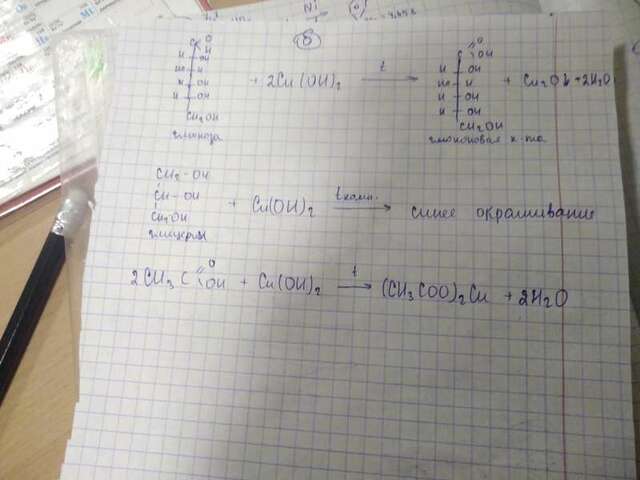 8
C O H
H OH
HO H
H OH
H OH
CH2OH
глюкоза
+ 2Cu(OH)2 t →
C O OH
H OH
HO H
H OH
H OH
CH2OH
глюконовая к-та
+ Cu2O↓ + 2H2O
CH2-OH
CH-OH
CH2OH
глицерин
+ Cu(OH)2 tкомн. → синее окрашивание
2CH3C O OH + Cu(OH)2 t → (CH3COO)2Cu + 2H2O